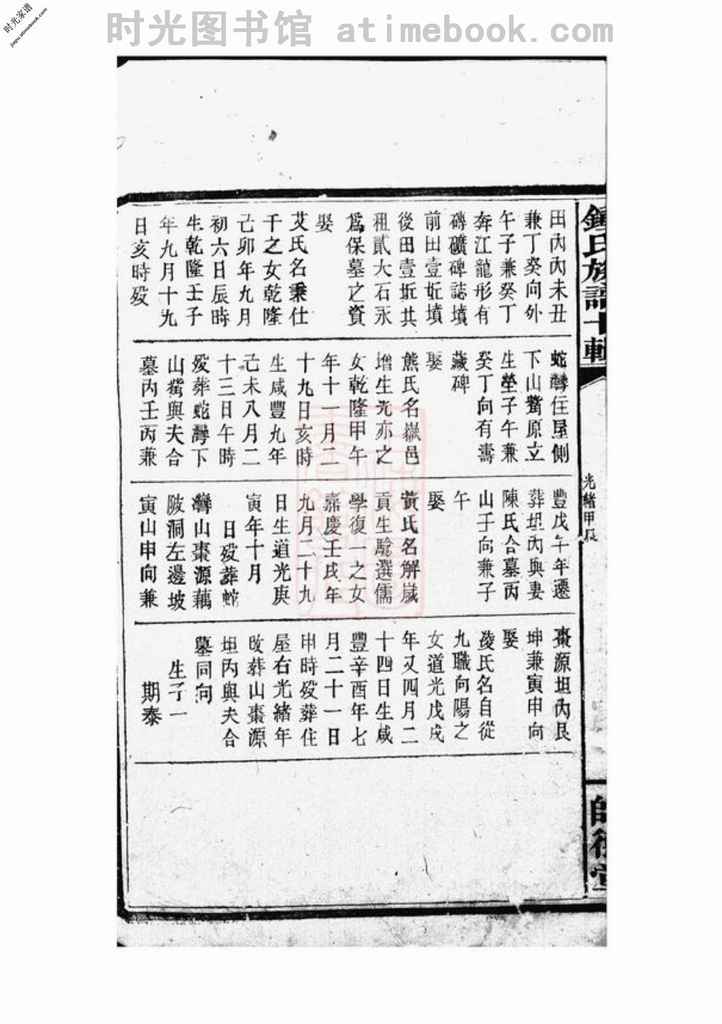 时光图书馆 atimebook.com
时光家谱
jiapu.atimebook.com
鍾氏族譜十輯
光緒甲辰
田內丙未丑
兼丁癸向外
午子兼癸丁
奔江龍形有
磚礦碑誌墳
前田壹坵墳
後田壹坵共
租貳大石永
爲保墓之資
娶
艾氏名秉仕
千之女乾隆
己卯年九月
初六日辰時
生乾隆壬子
年九月十九
日亥時殁
蛇灣住屋側
下山嘴原立
生塋子午兼
癸丁向有壽
藏碑
娶
熊氏名嶽邑
增生光亦之
女乾隆甲午
年十一月二
十九日亥時
生咸豐九年
己未八月二
十三日午時
殁葬蛇灣下
山嘴與夫合
墓丙壬丙兼
豐戊午年遷
葬坦內與妻
陳氏合墓丙
山子向兼子
午
娶
黃氏名解嵗
貢生駿選儒
學復一之女
嘉慶壬戌年
九月二十九
日生道光庚
寅年十月
日殁葬蛇
灣山棗源藕
陂洞左邊坡
寅山申向兼
棗源坦內艮
坤兼寅申向
娶
凌氏名自從
九職向陽之
女道光戊戌
年又四月二
十四日生咸
豐辛酉年七
月二十一日
申時殁葬住
屋右光緒年
改葬山棗源
坦內與夫合
墓同向
生子一
期泰